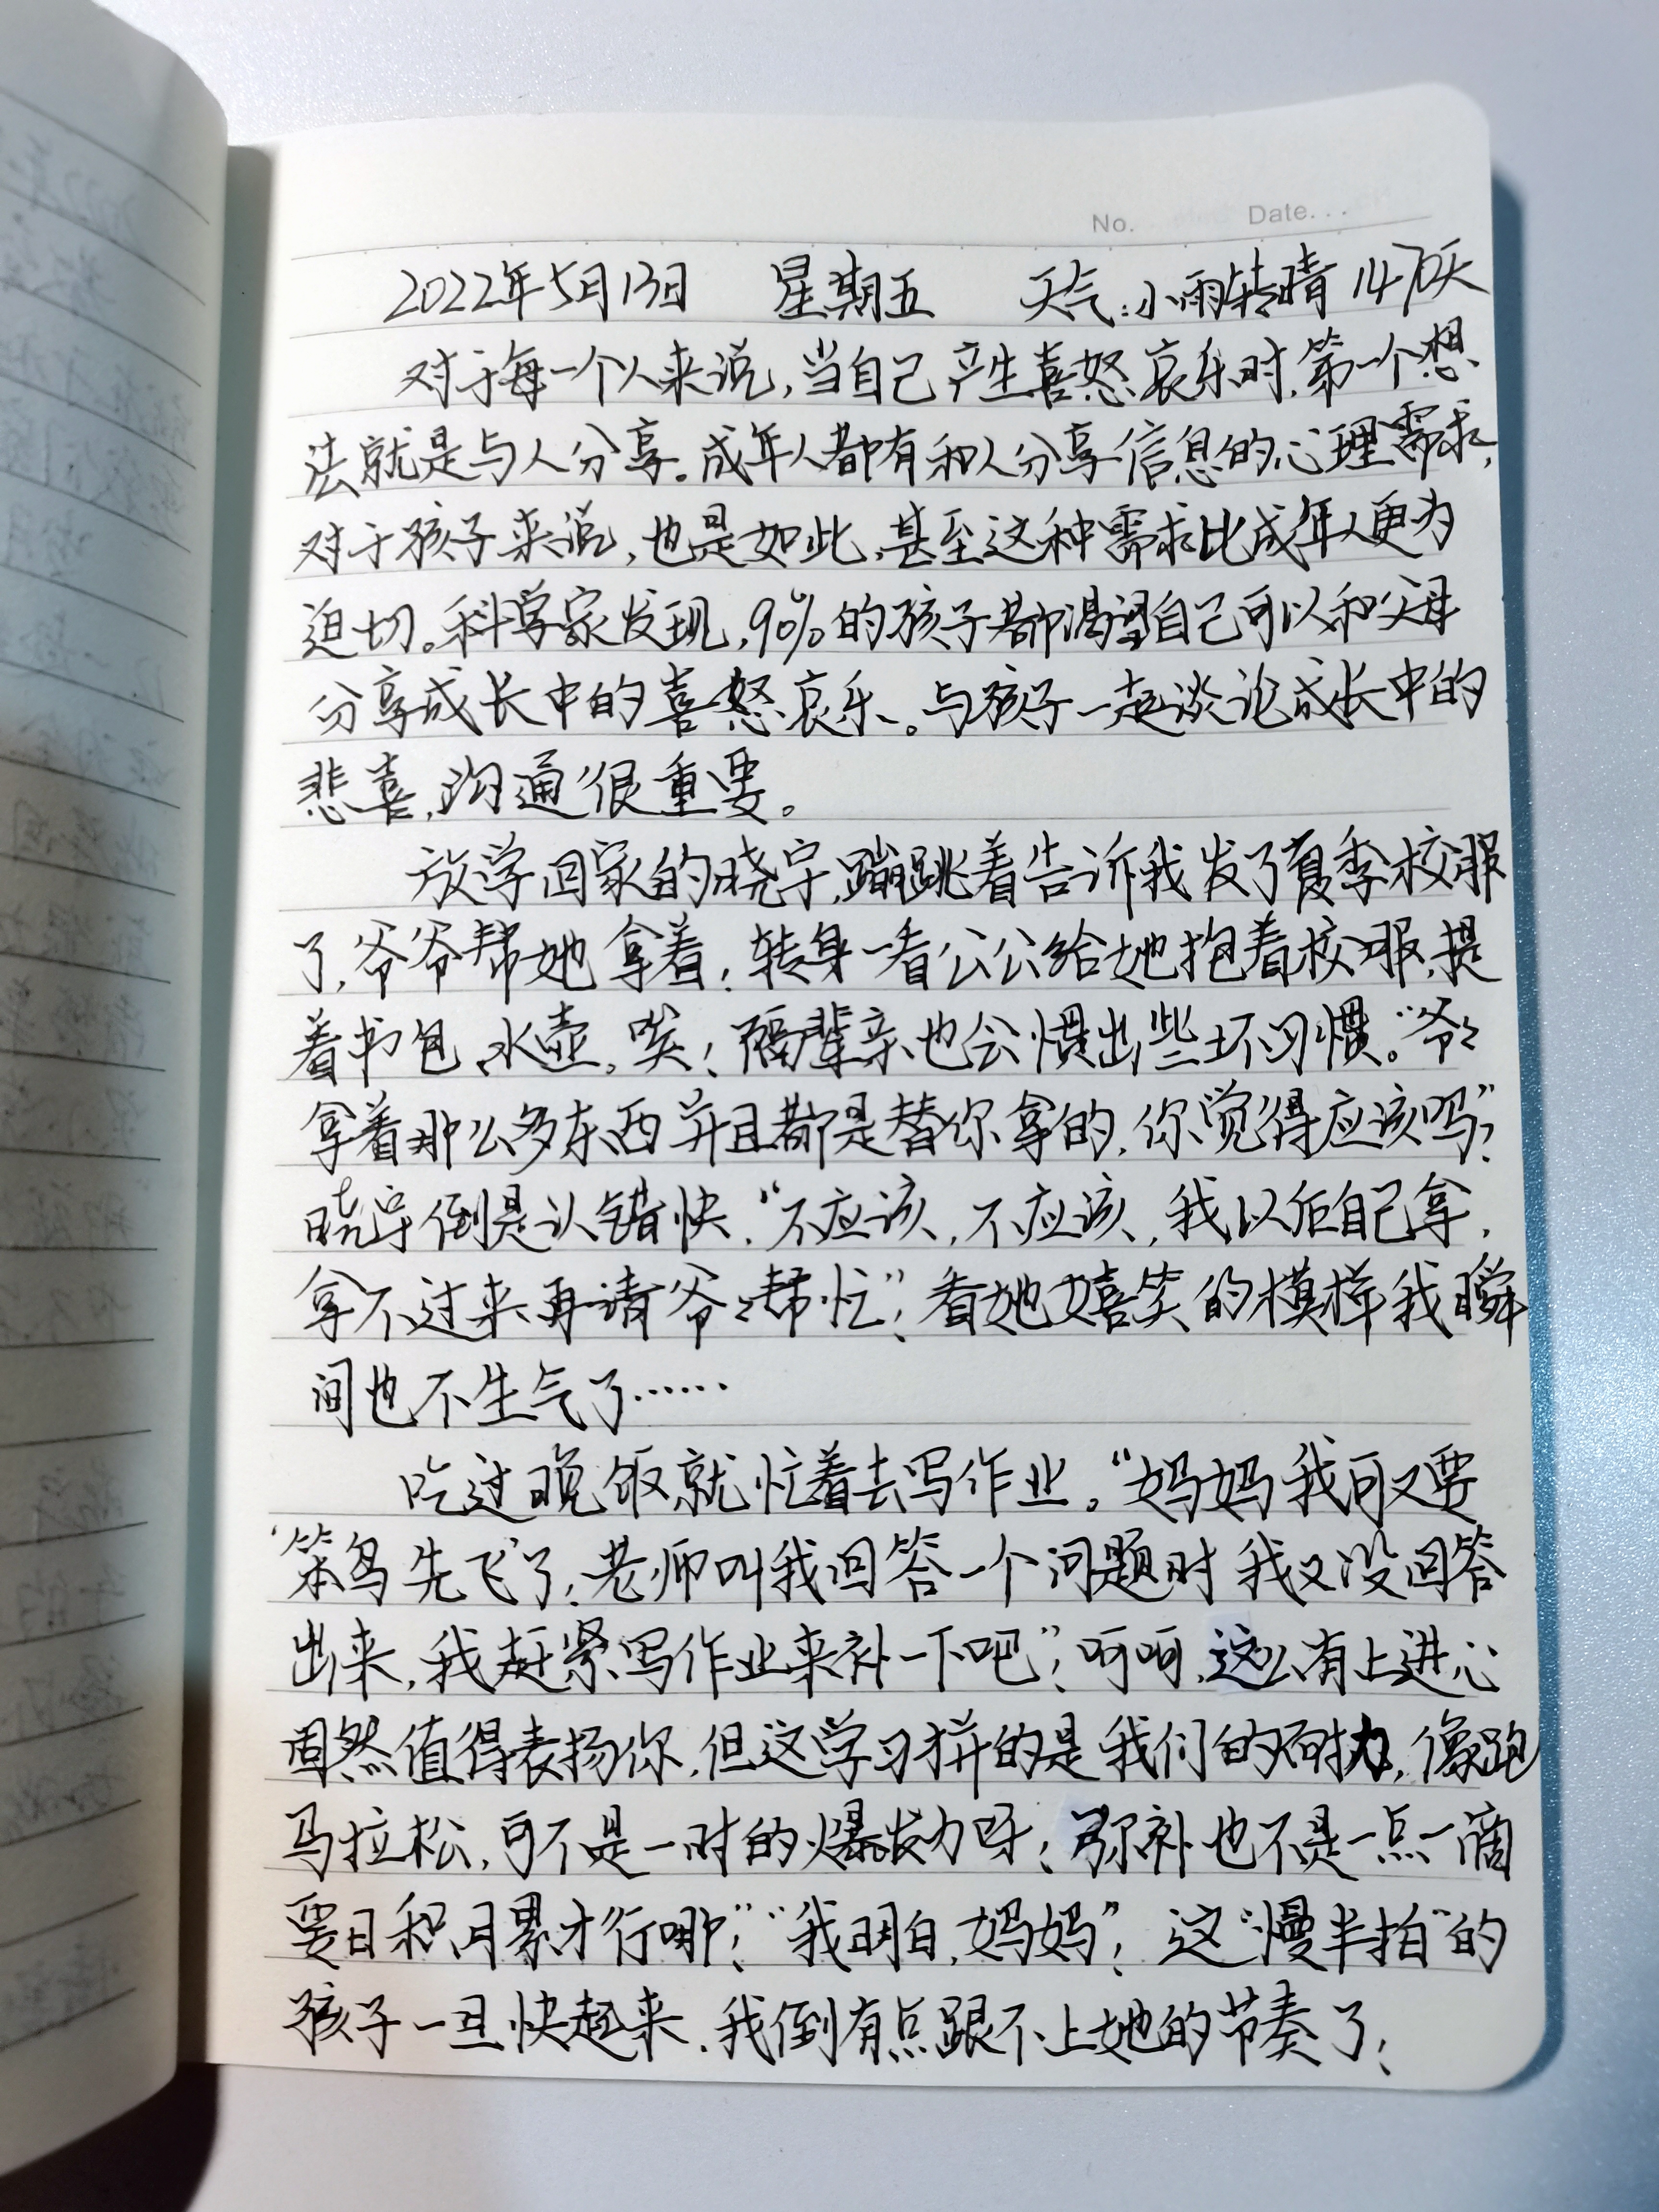 No. Date...
2022年5月13日 星期五 天气:小雨转晴 1470天
对于每一个人来说,当自己产生喜怒哀乐时,第一个想
法就是与人分享。成年人都有和人分享信息的心理需求,
对于孩子来说,也是如此,甚至这种需求比成年人更为
迫切。科学家发现,90%的孩子都渴望自己可以和父母
分享成长中的喜怒哀乐。与孩子一起谈论成长中的
悲喜,沟通很重要。
放学回家的晓宇,蹦跳着告诉我发了夏季校服
了,爷爷帮她拿着;转身一看公公给她抱着校服,提
着书包、水壶,唉;隔辈亲也会惯出些坏习惯。“爷々
拿着那么多东西并且都是替你拿的,你觉得应该吗”;
晓宇倒是认错快,“不应该,不应该,我以后自己拿,
拿不过来再请爷々帮忙”;看她嬉笑的模样我瞬
间也不生气了……
吃过晚饭就忙着去写作业。“妈妈我可又要
‘笨鸟先飞’了;老师叫我回答一个问题时我又没回答
出来,我赶紧写作业来补一下吧”;呵呵,这么有上进心
固然值得表扬你,但这学习拼的是我们的耐力,像跑
马拉松,可不是一时的爆发力呀;弥补也不是一点一滴
要日积月累才行哪”;“我明白,妈妈”;这“慢半拍”的
孩子一旦快起来,我倒有点跟不上她的节奏了;